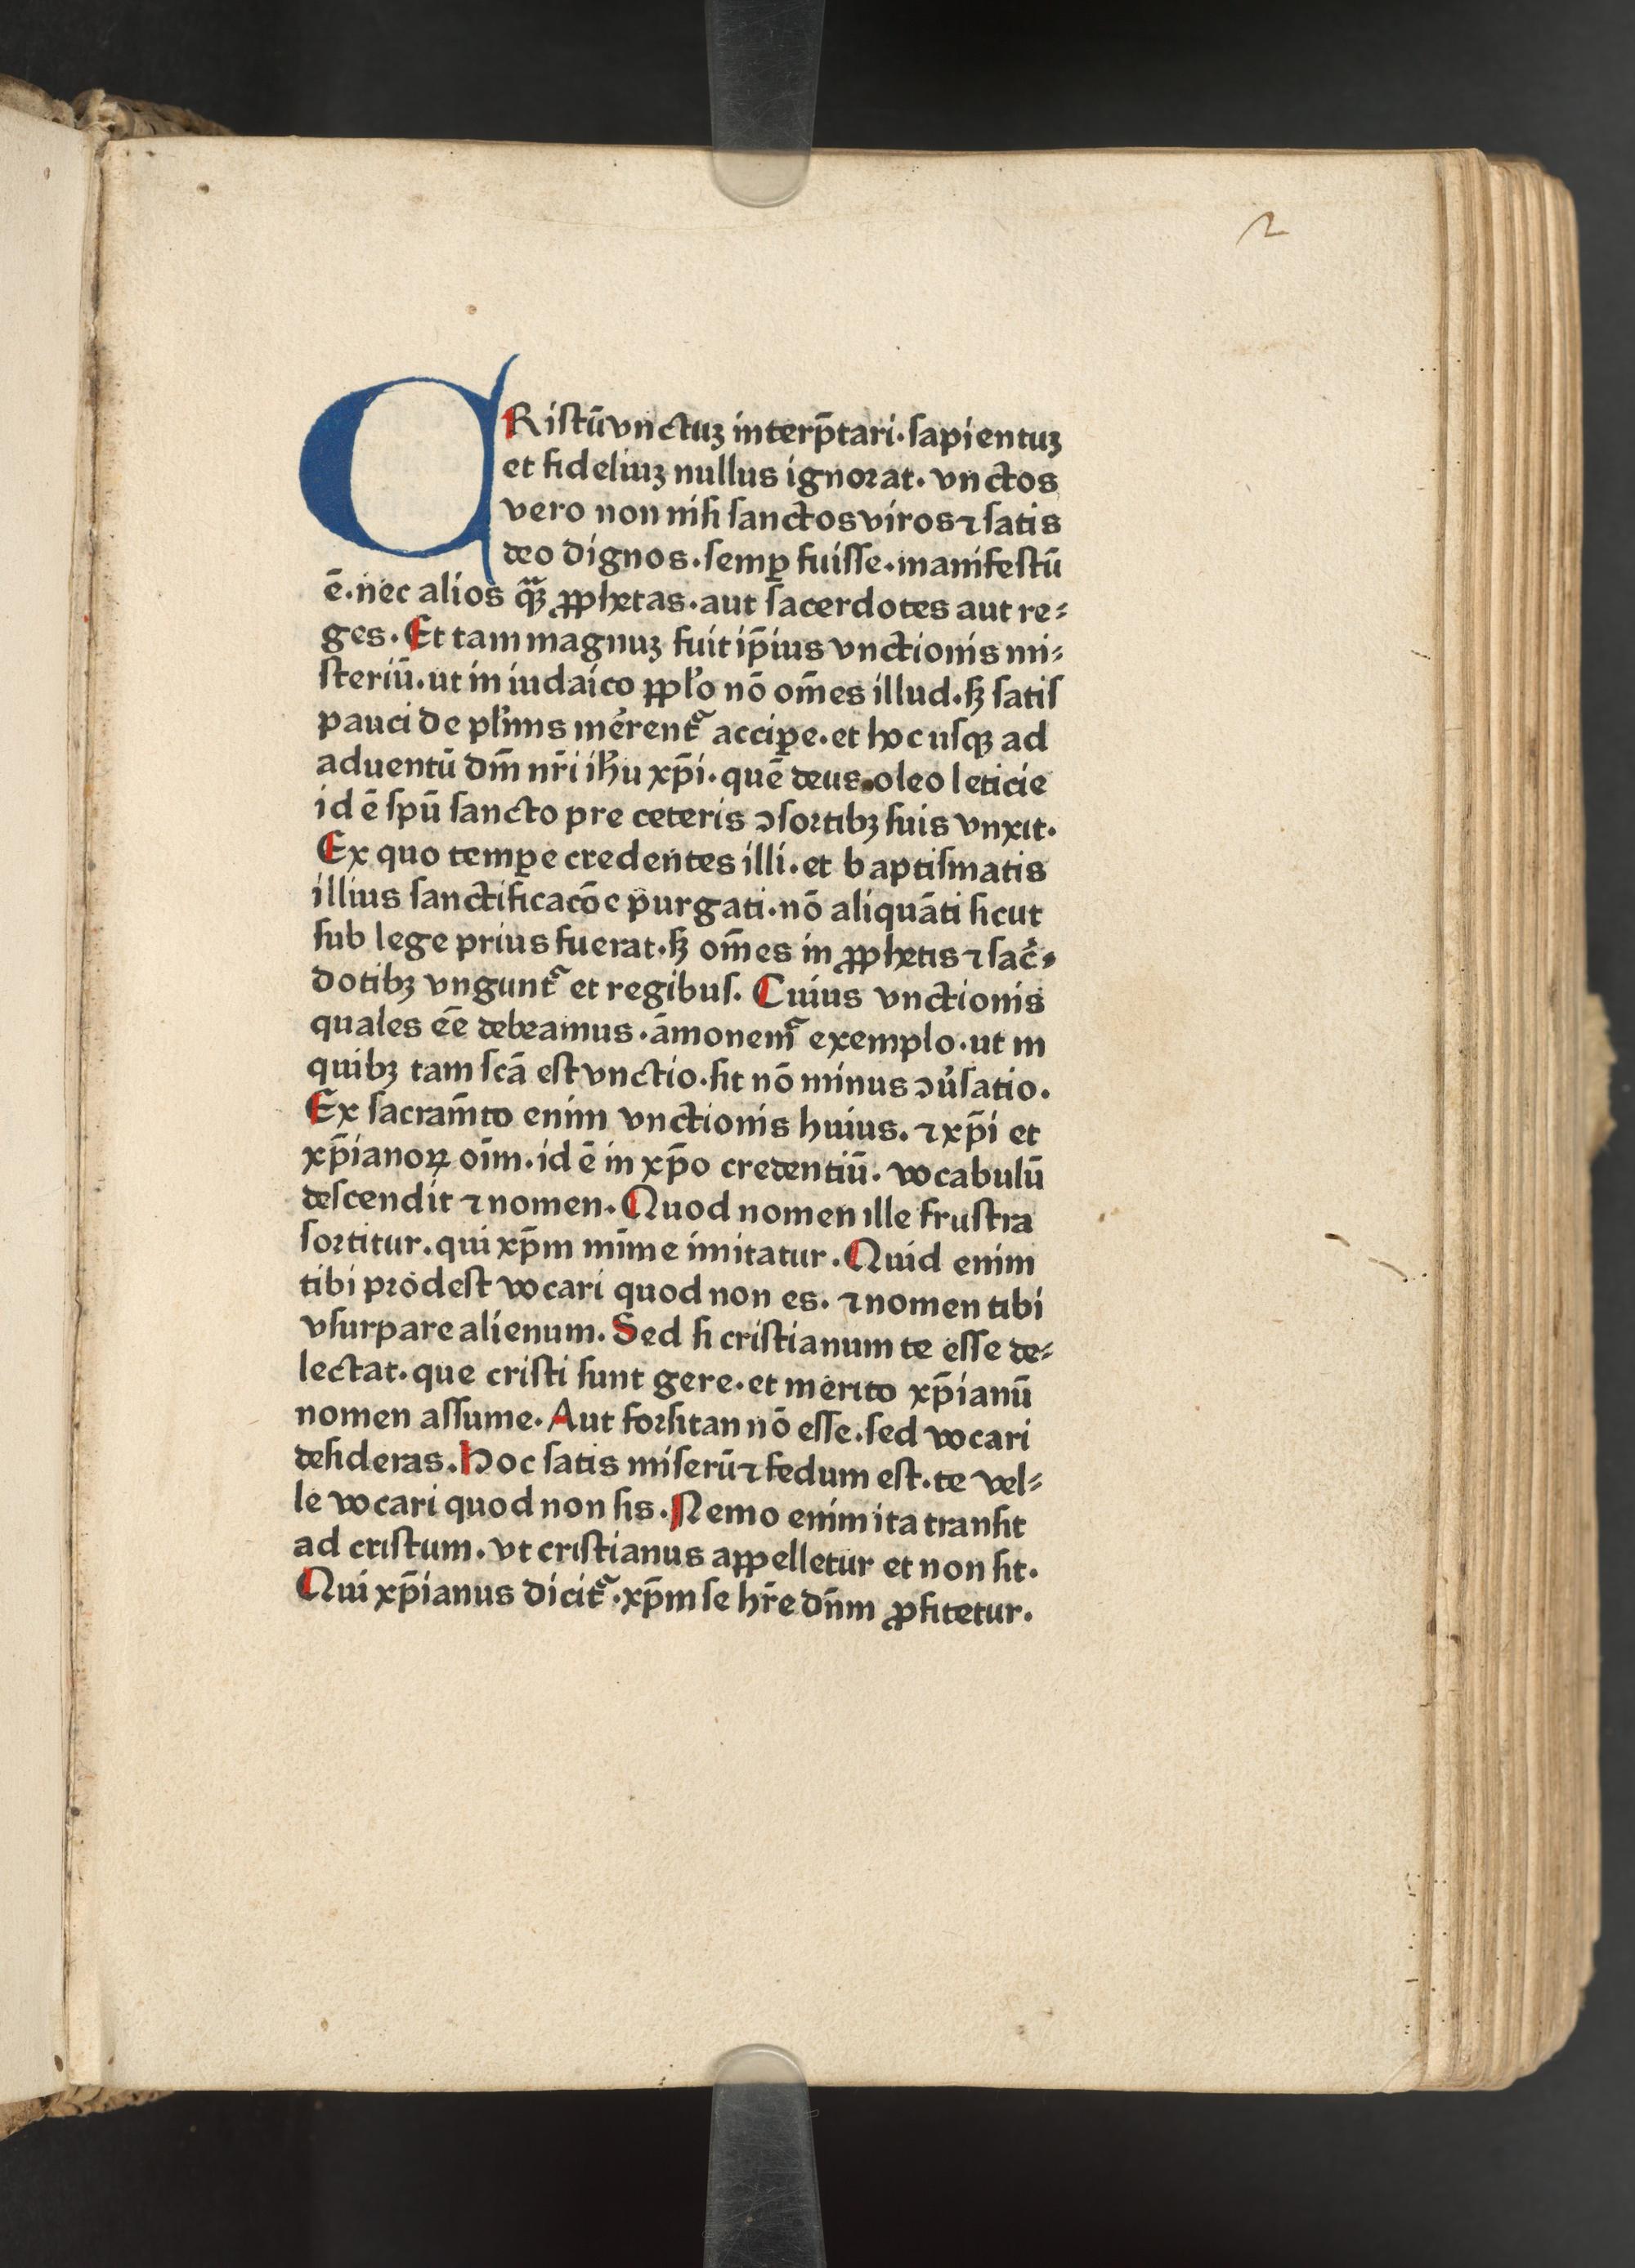 2
CRiſtū vnctuꝫ interp̄tari·ſapientuꝫ
et fideliuꝫ nullus ignorat· vnctos
vero non niſi ſanctos viros ⁊ ſatis
deo dignos·ſemꝑ fuiſſe·manifeſtū
ē·nec alios qͣꝫ ꝓphetas·aut ſacerdotes aut re⸗
ges· Et tam magnuꝫ fuit ip̄ius vnctionis mi⸗
ſteriū·ut in iudaico ppl̓o nō om̄es illud·ſꝫ ſatiſ
pauci de pl̓imis mer̄ent᷑ acciꝑe·et hoc uſqꝫ ad
aduentū dn̄i nr̄i ih̄u xp̄i·quē deus oleo leticie
id ē ſpū ſancto pre ceteris ↄſortibꝫ ſuis vnxit·
Ex quo temꝑe credentes illi·et baptiſmatis
illius ſanctificacōe purgati·nō aliquāti ſicut
ſub lege prius fuerat·ſꝫ om̄es in ꝓphetis ⁊ ſac̄⸗
dotibꝫ vngunt᷑ et regibuſ· Cuius vnctionis
quales eē debeamus·āmonem᷑ exemplo·ut in
quibꝫ tam ſcā eſt vnctio·ſit nō minus ↄu̓ſatio·
Ex ſacram̄to enim vnctionis huius· ⁊ xp̄i et
xp̄ianoꝝ oīm·id ē in xp̄o credentiū· vocabulū
deſcendit ⁊ nomen· Quod nomen ille fruſtra
ſortitur·qui xp̄m mīme imitatur· Quid enim
tibi prodeſt vocari quod non es· ⁊ nomen tibi
vſurpare alienum· Sed ſi criſtianum te eſſe de⸗
lectat·que criſti ſunt gere·et merito xp̄ianū
nomen aſſume· Aut forſitan nō eſſe·ſed vocari
deſideras· Hoc ſatis miſerū ⁊ fedum eſt·te vel⸗
le vocari quod non ſis· Nemo enim ita tranſit
ad criſtum· vt criſtianus appelletur et non ſit·
Qui xp̄ianus dicit᷑·xp̄m ſe hr̄e dn̄m ꝓfitetur·